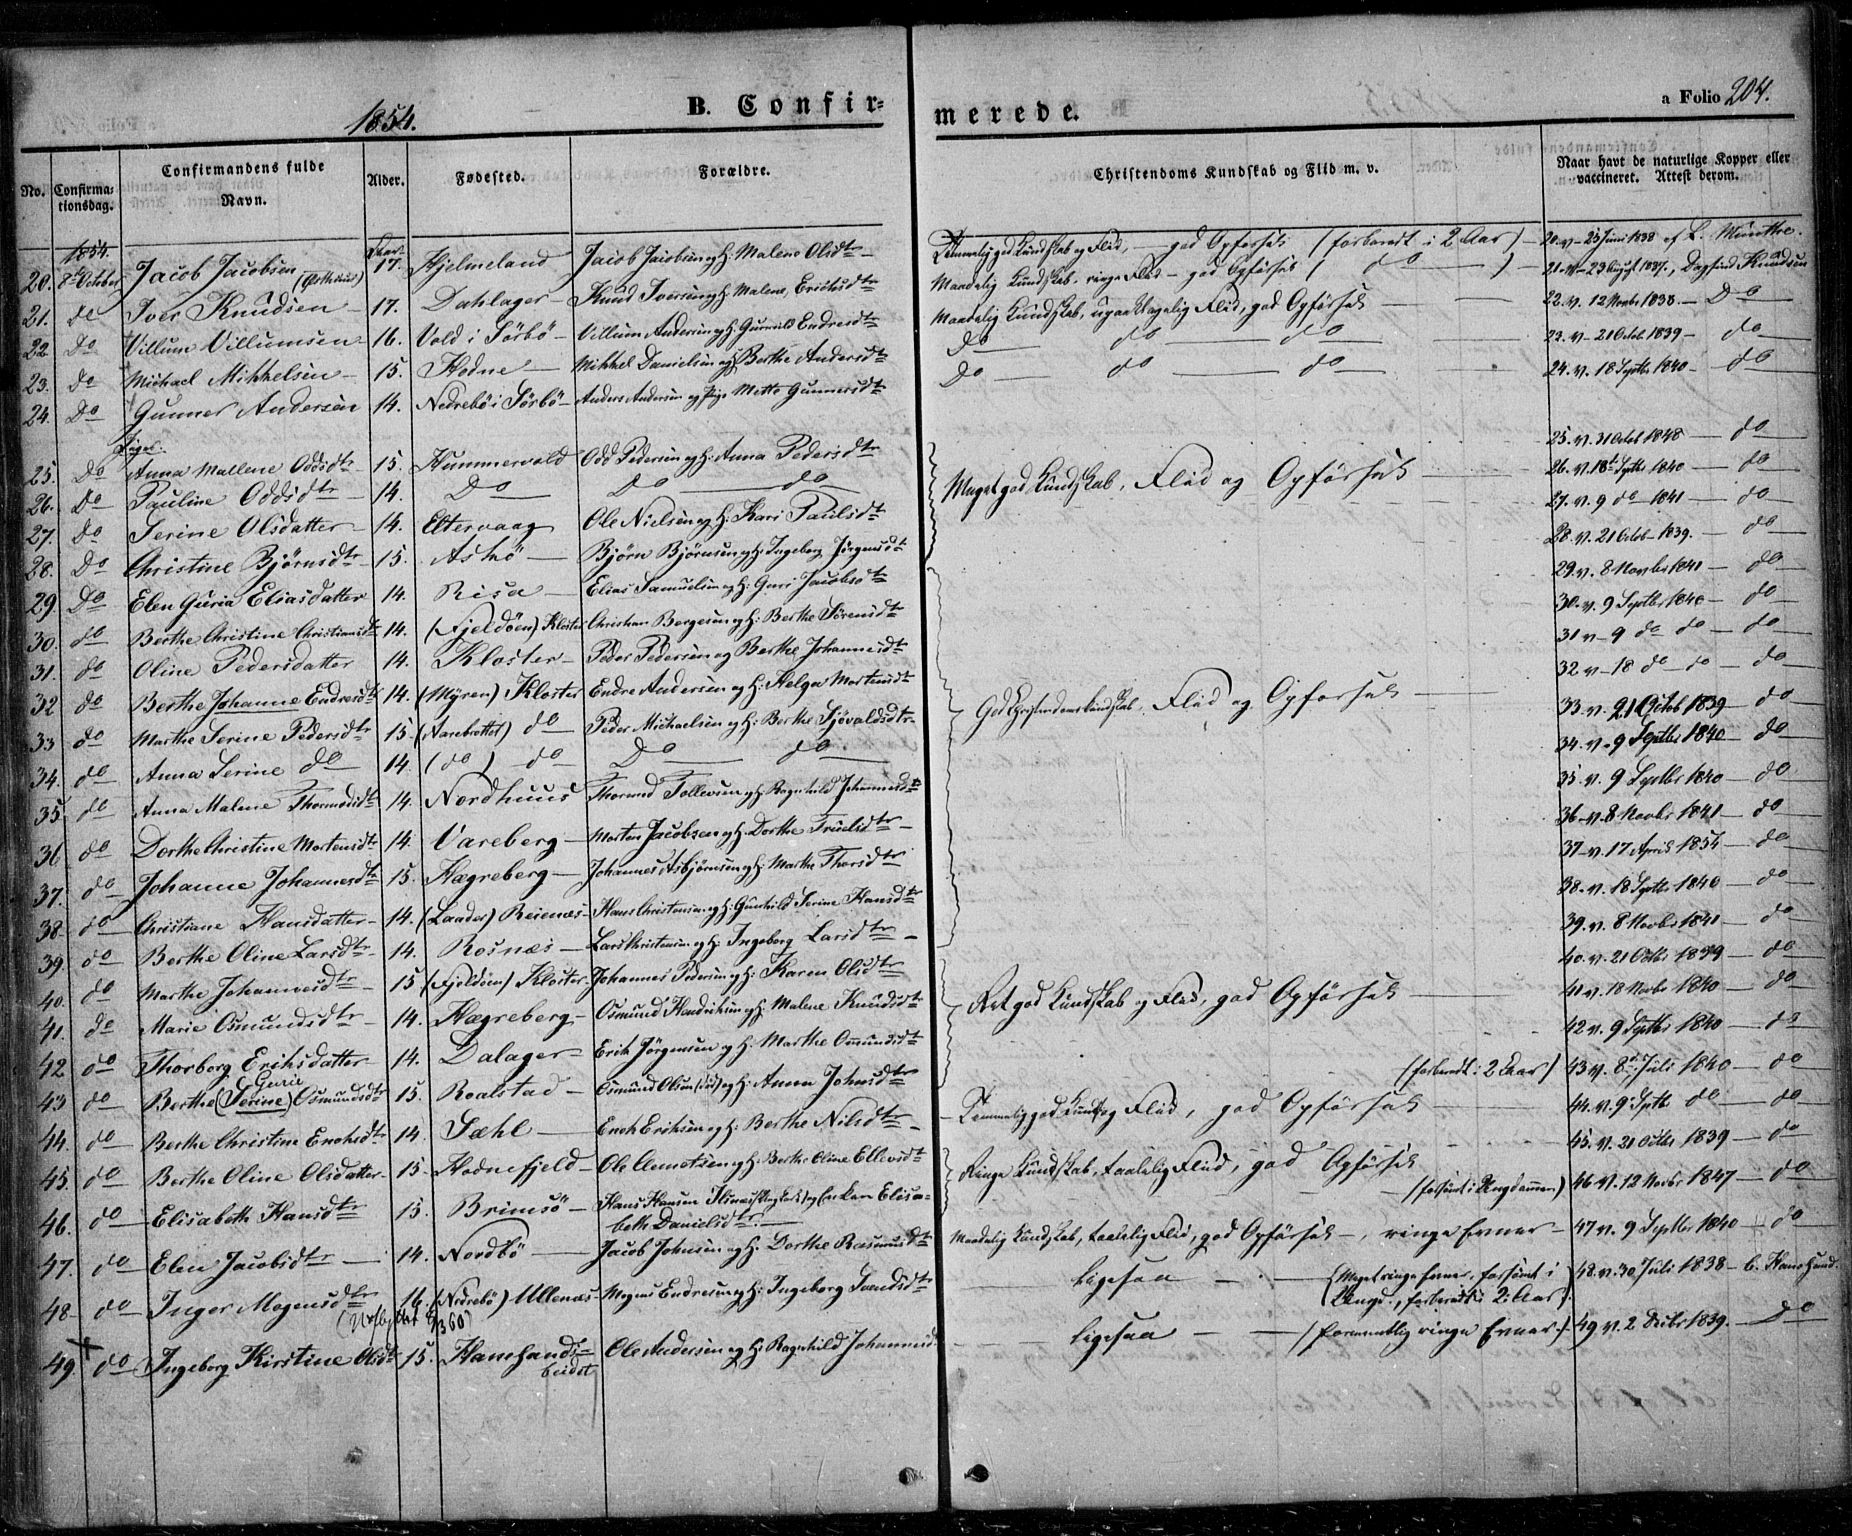 1854.
B. Confir-
merede.
a Folio 204.
No. Confirmationsdag. Confirmandens fulde Navn. Alder. Fødested. Forældre. Christendoms Kundskab og Flid m. v. Naar havt de naturlige Kopper eller vaccineret. Attest derom.
1854.
20. 8de October Jacob Jacobsen 17. Hjelmeland Jacob Jacobsen og H. Malene Olsdtr Temmelig god Kundskab og Flid, god Opførsel (forberedt i 2 Aar) 20. v. 23 Juni 1838 af L. Munthe.
21. do Iver Knudsen 17. Dahlager Knud Iversen og H. Malene Erichsdtr Maadelig Kundskab, ringe Flid god Opførsel ( do ) 21. v. 23 August 1837, Dagfind Knudsen
22 Do Villum Villumsen 16. Vold i Sørbø Villum Andersen og H. Gunvild Endresdtr Maadelig Kundskab, upaaklagelig Flid, god Opførsel 22. v. 12 Novbr 1838 Do
23. do Michael Mikkelsen 15. Hodne Mikkel Danielsen og H. Berthe Andersdtr Do do do 23. v. 21 Octob 1839 do
24. Do Gunner Andersen 14. Nedrebø i Sørbø Anders Andersen og Pige Mette Gunnersdtr Do do do 24. v. 18 Septbr 1840 do
Piger.
25. Do Anna Mallene Oddsdtr 15. Hummervold Odd Pedersen og H. Anna Pedersdtr 25. v. 31 Octob 1848 do
26. Do Pauline Oddsdtr 14. Do Do do Meget god Kundskab, Flid og Opførsel 26. v. 18t Septbr 1840 do
27. do Serine Olsdatter 14. Eltervaag Ole Nielsen og H. Kari Paulsdtr 27. v. 9 do 1841 do
28. Do Christine Bjørnsdtr 15. Askø Bjørn Bjørnsen og H. Ingeborg Jørgensdtr 28. v. 21 Octob 1839. do
29. Do Elen Guria Eliasdatter 14. Risa Elias Samuelsen og H. Guri Jacobsdtr 29. v. 8 Novbr 1841 do
30. do Berthe Christine Christiansdtr 14. (Fjeldøen) Kloster Christian Bergesen og H. Berthe Sørensdtr 30. v. 9 Septbr 1840 do
31. do Oline Pedersdatter 14. Kloster Peder Pedersen og Berthe Johannesdtr 31 v. 9 do do do
32 do Berthe Johanne Endresdtr 14. (Myren) Kloster Endre Andersen og H. Helga Mortensdtr God Christendomskundskab, Flid og Opførsel 32 v. 18 do do do
33 do Marthe Serine Pedersdtr 15. (Aarebrottet) do Peder Michaelsen og H. Berthe Sjøvaldsdtr 33. v. 21 Octob 1839 do
34. do Anna Serine do 14. (do) do Do do 34. v. 9 Septbr 1840 do
35. do Anna Malene Thormodsdtr 14. Nordhuus Thormod Tollevsen og H. Ragnhild Johannesdtr 35 v. 9 Septbr 1840 do
36 do Dorthe Christine Mortensdtr 14. Vareberg Morten Jacobsen og H. Dorthe Truelsdtr 36. v. 8 Novbr 1841 do
37. do Johanne Johannesdtr 15. Hægreberg Johannes Asbjørnsen og H. Marthe Thorsdtr 37. v. 17 April 1854 do
38. do Christiane Hansdatter 14. (Laader) Reienæs Hans Christensen og H. Gunhild Serine Hansdtr 38. v. 18 Septbr 1840 do
39. do Berthe Oline Larsdtr 14. Rosnæs Lars Christensen og H. Ingeborg Larsdtr 39. v. 8 Novbr 1841 do
40. do Marthe Johannesdtr 15 (Fjeldøen) Kloster Johannes Pedersen og H. Karen Olsdtr 40. v. 21 Octbr 1839 do
41. do Marie Osmundsdtr 14. Hægreberg Osmund Hendriksen og H. Malene Knudsdtr Ret god Kundskab og Flid, god Opførsel 41 v. 18 Novbr 1840 do
42 do Thorborg Eriksdatter 14. Dalager Erik Jørgensen og H. Marthe Osmundsdtr 42 v. 9 Septbr 1840 do
43 do Berthe (Serine) Gurie Osmundsdtr 15. Roalstad Osmund Olsen (død) og H. Anna Johnsdtr (forberedt i 2 Aar) 43 v. 8de Juli 1840 do
44. do Berthe Christine Enoksdtr 14. Sæhl Enok Eriksen og H. Berthe Nilsdtr Temmelig god Kundsk og Flid, god Opførsel 44. v. 9 Septb do do
45. do Berthe Oline Olsdatter 15. Hodnefjeld Ole Clemetsen og H. Berthe Oline Ellevsdtr Ringe Kundskab, taalelig Flid, god Opførsel 45. v. 21 Octbr 1839 do
46. do Elisabeth Hansdtr 15. Brimsø Hans Hansen og Enken Elisabeth Danielsdtr (forsømt i Ungdommen) 46 v. 12 Novbr 1847 do
47. do Elen Jacobsdtr 14. Nordbø Jacob Johnsen og H. Dorthe Rasmusdtr Maadelig Kundskab, taalelig Flid, god Opførsel, ringe Evner 47 v. 9 Septbr 1840 do
48. do Inger Mogensdtr 16 (Nedrebø) Ullenæs Mogens Endresen og H. Ingeborg Svendsdtr Ligesaa (Meget ringe Evner, forsømt i Ungd., forberedt i 2 Aar) 48. v. 30 Juli 1838 C. Hans Hund.
49 do Ingeborg Kirstine Olsdtr 15. Hanehandsbeidet Ole Andersen og H. Ragnhild Johannesd Ligesaa (forunnetlig ringe Evner) 49 v. 2 Decbr 1839. Do